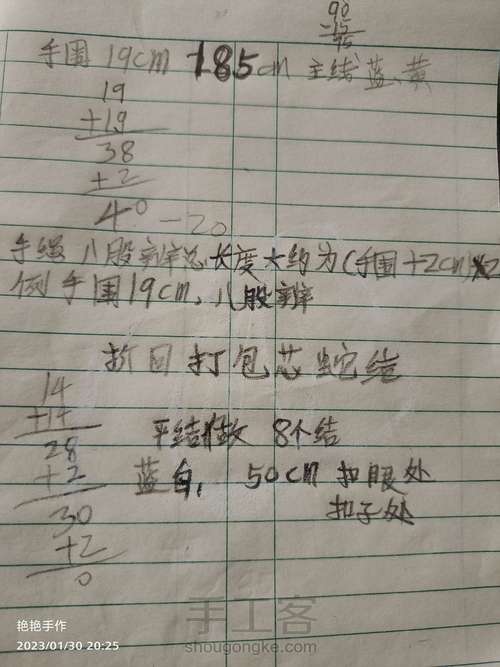 90
手围 19cm 185cm 主线蓝、黄
19
+19
38
+2
40 -20
手绳 八股辫总长度大约为(手围+2cm)×2
例手围19cm,八股辫
折回打包芯蛇结
14
+14
28
+2
30
+2
0
平结做 8个结
蓝白, 50cm 扣眼处
扣子处
艳艳手作
2023/01/30 20:25
手工客
shougongke.com